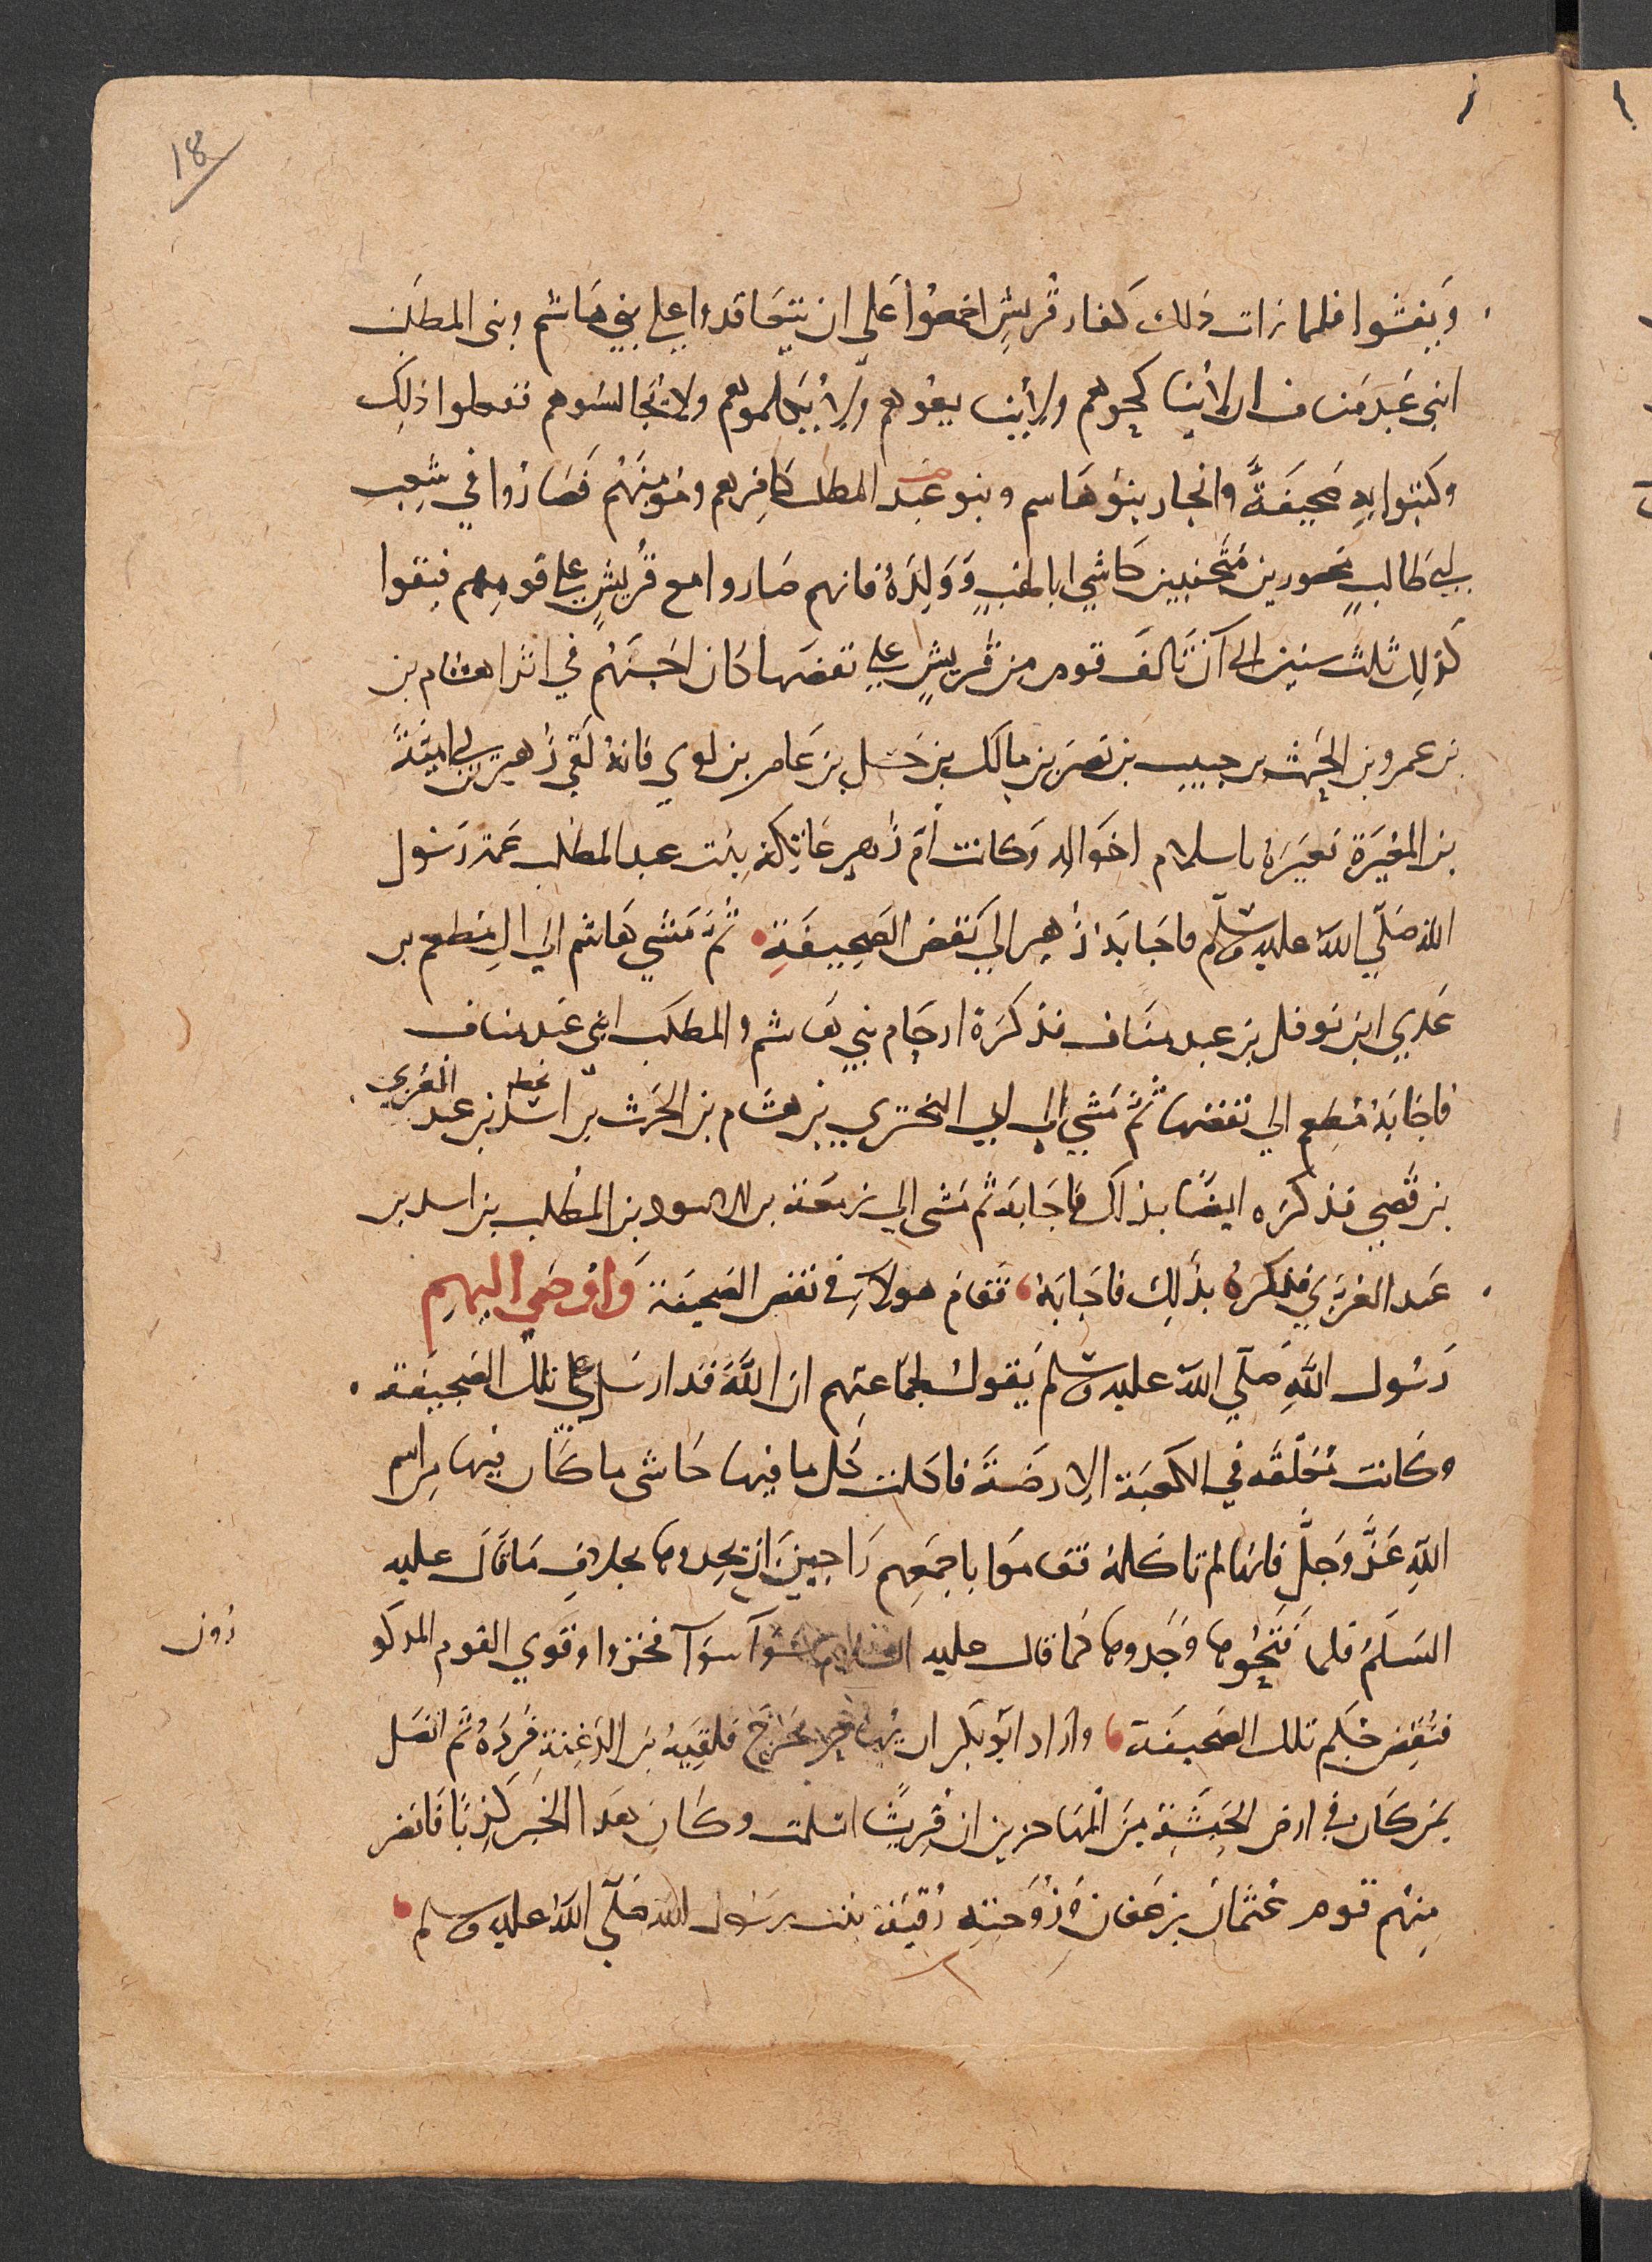 18
ويفشوا فلما رات ذلك كفار قُريشٍ اجمعُوا على ان يتعَاقدوا على بني هَاشم وبنى المطلب
ابنى عَبد مَناف ان لا يُناكحوهم ولا يُبايعُوهم ولا يُكلموهم ولا يُجالسُوهم ففعلوا ذلِك
وكتبُوا بِهِ صَحيفَةً وانحَاز بنوُ هَاسم وبنو عَبد المطلب كافِرهم ومُومِنهُم فَصَارُوا في شِعب
ابي طَالبٍ محصورين مُتَجنبين حَاشي ابا لهَبٍ وَوَلِدهُ فانهم صَاروا مع قُريشٍ على قومِهم فبقوا
كذلِك ثلث سنين الى اَن تَالفَ قوم من قُريشٍ على نقضهَا كان احسَنَهُم في اثراً هشام بن
بن عمرو بن الحَرث بن حبيب بن نصَر بن مَالك بن حَسل بن عَامر بن لوي فانهُ لَقي زُهير بن ابي اميَةَ
بن المغيرَة فعَيرَهُ باسلام اخوَاله وَكانت اُم زُهير عَاتِكة بِنت عبد المطلب عَمة رَسُول
الله صَلّي اللهُ عليه وسَلّم فاجَابَهُ زُهير الي نَقض الصَحِيفَةِ ثُمَ مَشي هَاشم الي المِطعم بن
عَدِي ابن نوفل بن عبد منَاف فذكرَهُ ارحَام بني هَاشم والمطلب ابني عَبد مناف
فاجَابَهُ مُطعِم الي نقضهَا ثُمَ مَشي الي ابي البختري بن هشام بن الحَرث بن اسَد بن عَبد العُزي
بن قُصي فذكرَه ايضًا بذاك فاجَابَه ثم مَشى الي زمعَة بن الاسود بن المُطلب بن اسد بن
عَبد العُزي فذكرَهُ بذَلِك فاجَابَهُ فقَام هولاءِ في نقض الصَحيفَة وَاوحَي اليهم
رَسُول اللهِ صَلّي اللهُ عليه وسَلم يَقولُ لجمَاعتِهم ان اللهَ قد ارسَل علي تلك الصَحِيفة
وكَانت مُعَلّقَه في الكعبَة الارضَةَ فاكلت كُل ما فيها حَاشى ما كان فيها من اسم
اللهِ عَزَّ وَجلَّ فانهَا لم تاكلهُ فقامَوا باجمعِهم رَاجينَ ان يجدوهَا بخلاف مَا قَال عليه
السَلَمُ فلما فَتحُوهَا وَجَدوهَا كما قال عليه السَلام سَوآ سَوآ فخزوا وقوي القوم المدكو
رون
فنُقِض حُكم تلك الصَحيفَة وارَاد ابُو بَكر ان يُهَاجر فخرَج فلقيَهُ بن الدَغِنةِ فَردَهُ ثم اتصَل
بمن كان في ارض الحَبشَةِ مِنَ المُهَاجرين ان قُريشًا اسلمت وكَانَ هَذا الخبَر كَذِبًا فانصَر
مِنهُم قوم عُثمَان بن عَفان وَزَوجَته رُقيَة بنت رسُول الله صَلّى اللهُ عليه وسلم